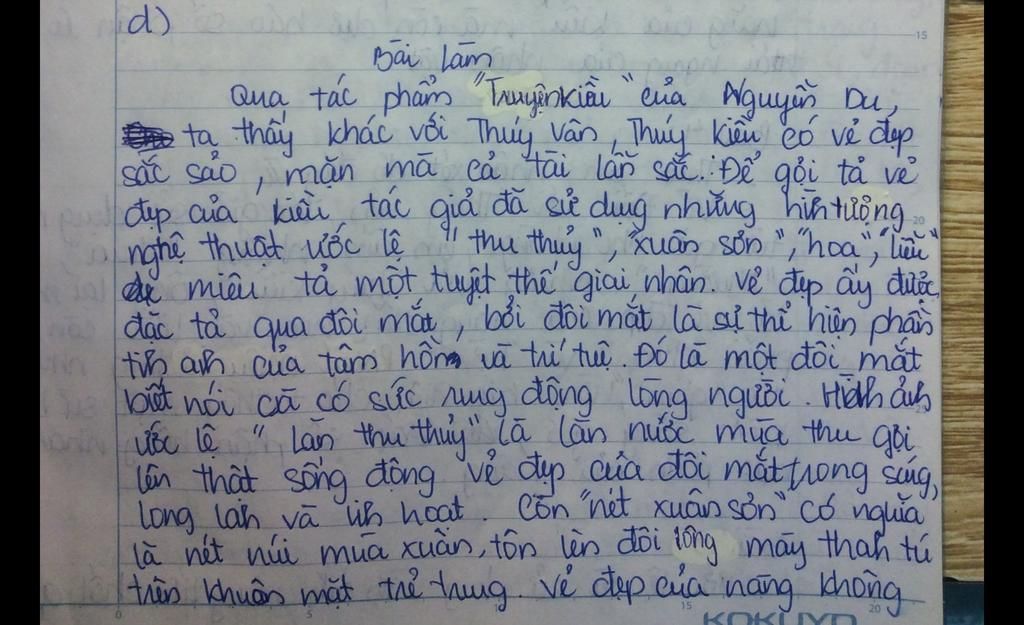 d)
Bài làm
Qua tác phẩm "Truyện Kiều" của Nguyễn Du,
ta thấy khác với Thúy Vân, Thúy Kiều có vẻ đẹp
sắc sảo, mặn mà cả tài lẫn sắc. Để gợi tả vẻ
đẹp của Kiều tác giả đã sử dụng những hình tượng
nghệ thuật ước lệ "thu thủy", "xuân sơn", "hoa", "liễu"
để miêu tả một tuyệt thế giai nhân. Vẻ đẹp ấy được
đặc tả qua đôi mắt, bởi đôi mắt là sự thể hiện phần
tinh anh của tâm hồn và trí tuệ. Đó là một đôi mắt
biết nói cà có sức rung động lòng người. Hình ảnh
ước lệ "Làn thu thủy" là làn nước mùa thu gợi
lên thật sống động vẻ đẹp của đôi mắt trong sáng,
long lanh và linh hoạt. Còn "nét xuân sơn" có nghĩa
là nét núi mùa xuân, tôn lên đôi lông mày thanh tú
trên khuôn mặt trẻ trung. Vẻ đẹp của nàng không
KOKUYO
15
20
25
0
5
15
20